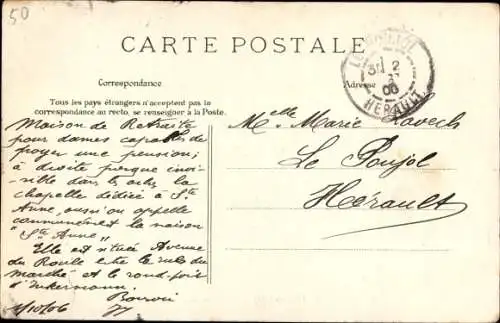 50
CARTE POSTALE
Correspondance
Adresse
Tous les pays étrangers n'acceptent pas la
correspondance au recto, se renseigner à la Poste.
HERAULT
2
06
Maison de Retraite
pour dames capables de
payer une pension;
à droite presque invi-
sible dans les arbres la
chapelle dédiée à Ste
Anne, aussi on appelle
communément la maison
"Ste Anne"
Elle est située Avenue
du Roule entre la rue du
marché et le rond-point
d'Inkermann.
/10/06
Melle Marie
Le Poujol
Hérault